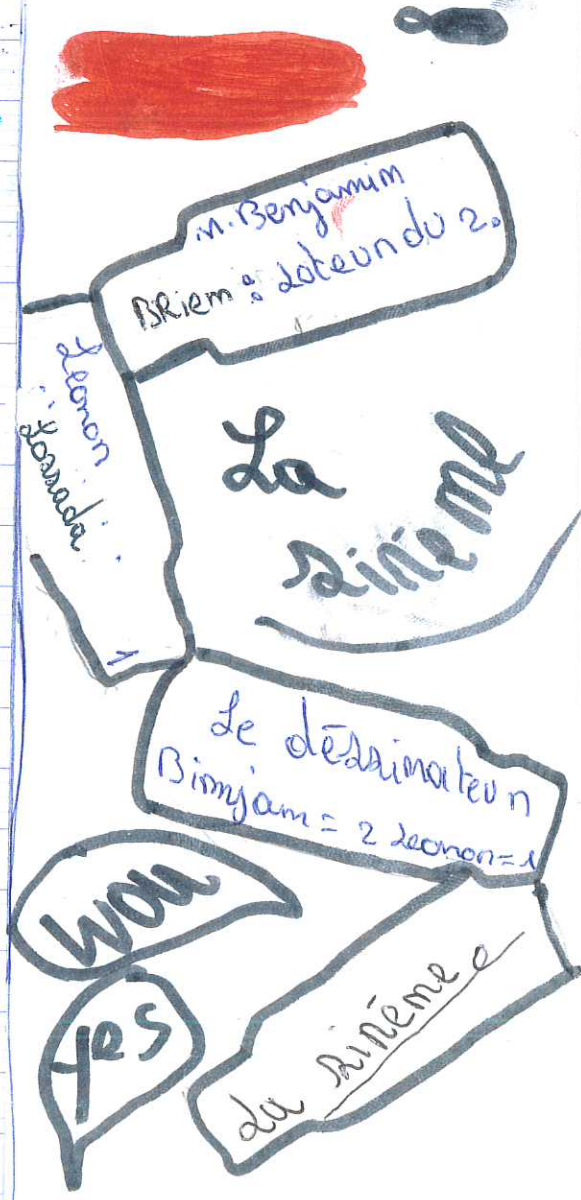 M. Benjamin
BRiem : Loteur du 2.
Leonor
Lossada
1
La
sinéme
Le déssinateur
Binnjam = 2 Leonor = 1
wou
yes
La sinéme